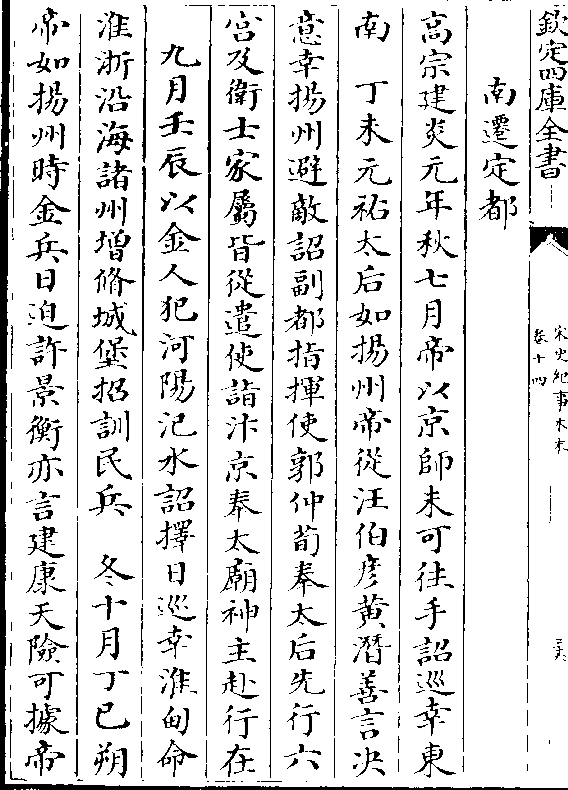 欽定四庫全書
宋史紀事本末
卷十四
南遷定都
高宗建炎元年秋七月帝以京師未可往手詔巡幸東
南　丁未元祐太后如揚州帝從汪伯彦黄潛善言决
意幸揚州避敵詔副都指揮使郭仲荀奉太后先行六
宫及衛士家屬皆從遣使詣汴京奉太廟神主赴行在
九月壬辰以金人犯河陽汜水詔擇日巡幸淮甸命
淮浙沿海諸州增脩城堡招訓民兵　冬十月丁巳朔
帝如揚州時金兵日迫許景衡亦言建康天險可據帝